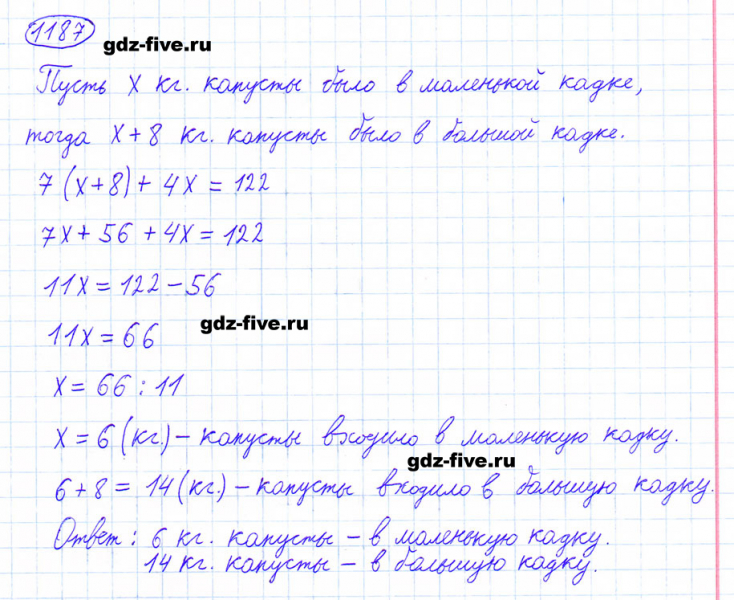 1187
gdz-five.ru
Пусть x кг. капусты было в маленькой кадке,
тогда x+8 кг. капусты было в большой кадке.
7(x+8)+4x=122
7x+56+4x=122
11x=122-56
11x=66
gdz-five.ru
x=66:11
x=6(кг.)-капусты входило в маленькую кадку.
gdz-five.ru
6+8=14(кг.)-капусты входило в большую кадку.
Ответ: 6 кг. капусты - в маленькую кадку.
14 кг. капусты - в большую кадку.